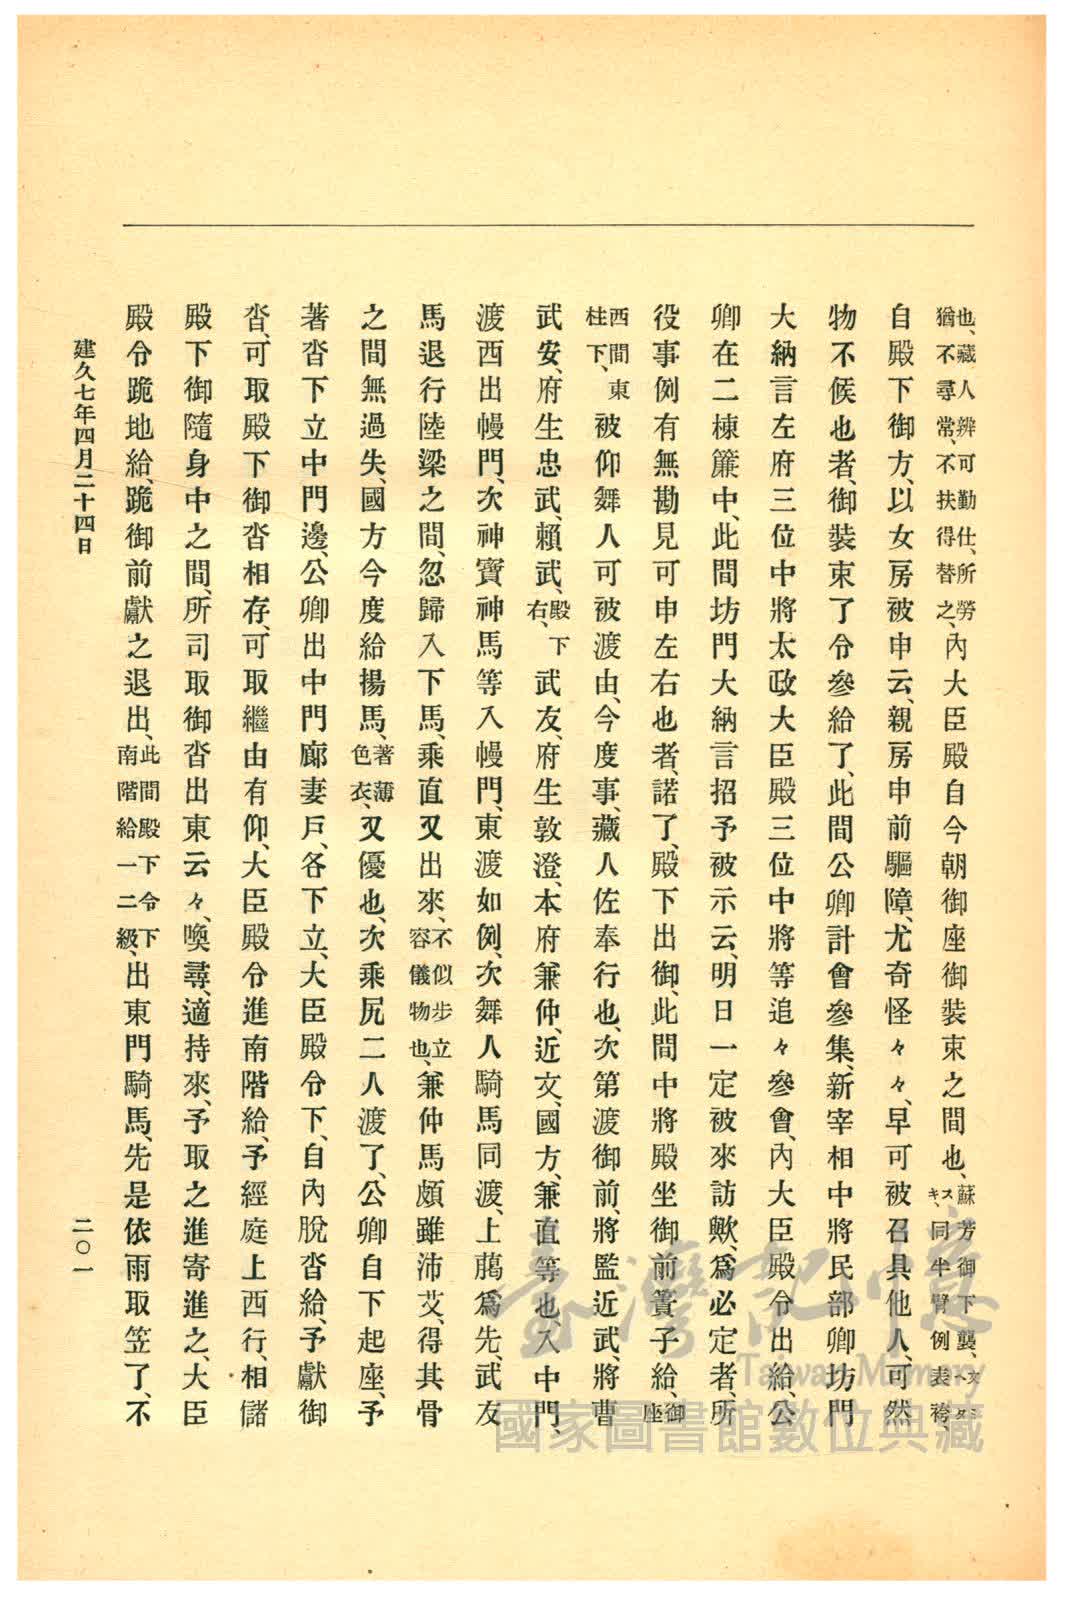 也、藏人辨可勤仕、所勞猶不尋常、不扶得替之、內大臣殿自今朝御座御裝束之間也、蘇芳御下襲、文ヘタミスキ、同半臂例表袴、
自殿下御方、以女房被申云、親房申前驅障、尤奇怪々々、早可被召具他人、可然
物不候也者、御裝束了令參給了、此間公卿計會參集、新宰相中將民部卿坊門
大納言左府三位中將太政大臣殿三位中將等追々參會、內大臣殿令出給、公
卿在二棟簾中、此間坊門大納言招予被示云、明日一定被來訪歟、爲必定者、所
役事例有無勘見可申左右也者、諾了、殿下出御、此間中將殿坐御前簀子給、御座
西間東柱下、被仰舞人可被渡由、今度事、藏人佐奉行也、次第渡御前、將監近武、將曹
武安、府生忠武、賴武、殿下右、武友、府生敦澄、本府兼仲、近文、國方、兼直等也、入中門、
渡西出幔門、次神寶神馬等入幔門、東渡如例、次舞人騎馬同渡、上﨟爲先、武友
馬退行陸梁之間、忽歸入下馬、乘直又出來、不似步立容儀物也、兼仲馬頗雖沛艾、得其骨
之間無過失、國方今度給揚馬、著薄色衣、又優也、次乘尻二人渡了、公卿自下起座、予
著沓下立中門邊、公卿出中門廊妻戶、各下立、大臣殿令下、自內脫沓給、予獻御
沓、可取殿下御沓相存、可取繼由有仰、大臣殿令進南階給、予經庭上西行、相儲
殿下御隨身中之間、所司取御沓出東云々、喚尋、適持來、予取之進寄進之、大臣
殿令跪地給、跪御前獻之退出、此間殿下令下南階給一二級、出東門騎馬、先是依雨取笠了、不
建久七年四月二十四日
二〇一
臺灣記憶
Taiwan Memory
國家圖書館數位典藏